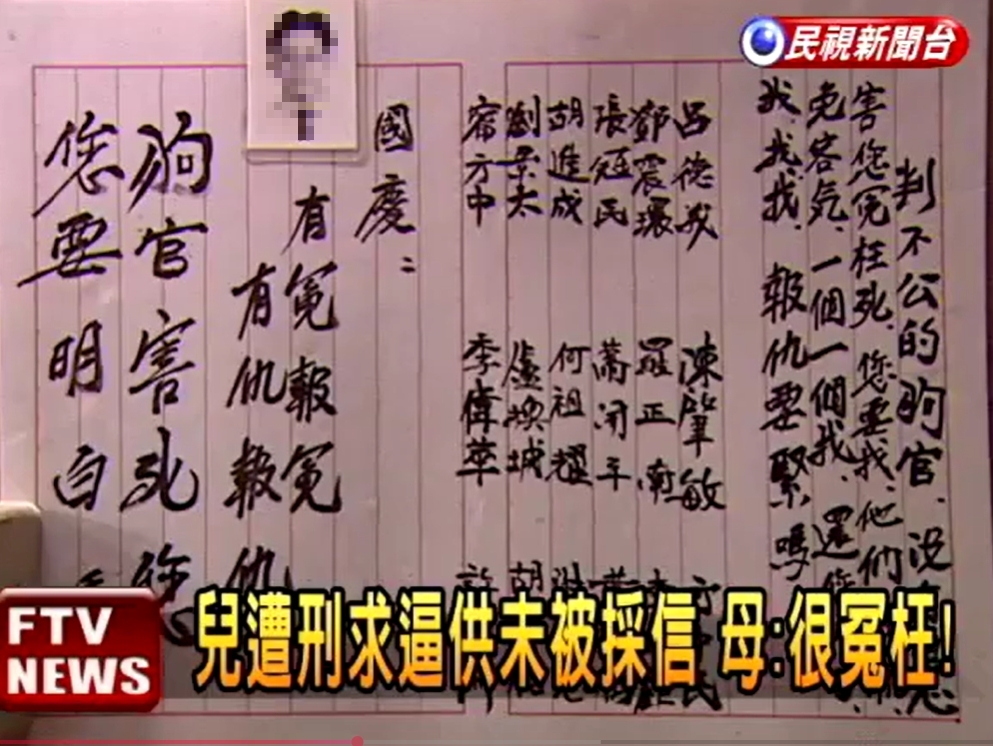 民視新聞台
判不公的狗官.沒
害您冤枉死.您要找.他們
免客氣.一個一個找.還您
找.找找.報仇要緊嗎
陳肇敏
鄧震環 羅正南
張冠民 蕭開平
胡進成 何祖耀 洪
劉景太 盧煥城 胡
宿方中 李偉華 許
國慶：
有冤報冤
有仇報仇
狗官害死您
您要明白
FTV
NEWS
兒遭刑求逼供未被採信 母:很冤枉!